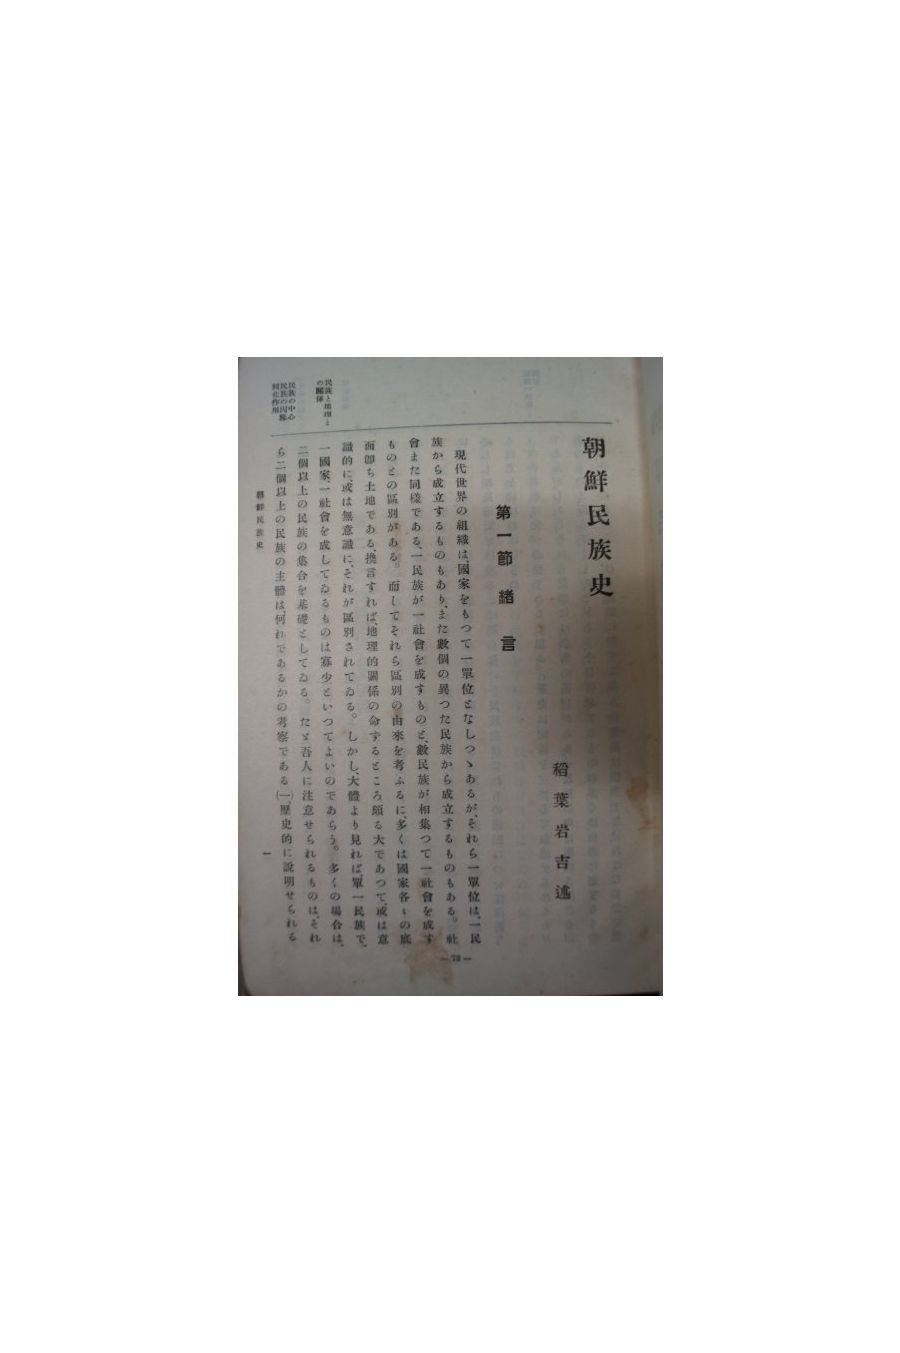 朝鮮民族史
稻葉岩吉述
第一節 緒言
現代世界の組織は、國家をもつて一單位となしつゝあるが、それら一單位は、一民
族から成立するものもあり、また數個の異つた民族から成立するものもある。社
會また同樣である、一民族が一社會を成すものと、數民族が相集つて一社會を成す
ものとの區別がある。而してそれら區別の由來を考ふるに、多くは國家各々の底
面卽ち土地である、換言すれば、地理的關係の命するところ頗る大であつて、或は意
識的に、或は無意識に、それが區別されてゐる。しかし、大體より見れば、單一民族で、
一國家、一社會を成してゐるものは寡少といつてよいのであらう。多くの場合は、
二個以上の民族の集合を基礎としてゐる。たゞ吾人に注意せられるものは、それ
ら二個以上の民族の主體は、何れであるかの考察である(一、歷史的に說明せられる
民族と地理と
の關係
民族の中心
民族の
同化作用
朝鮮民族史
一
—73—